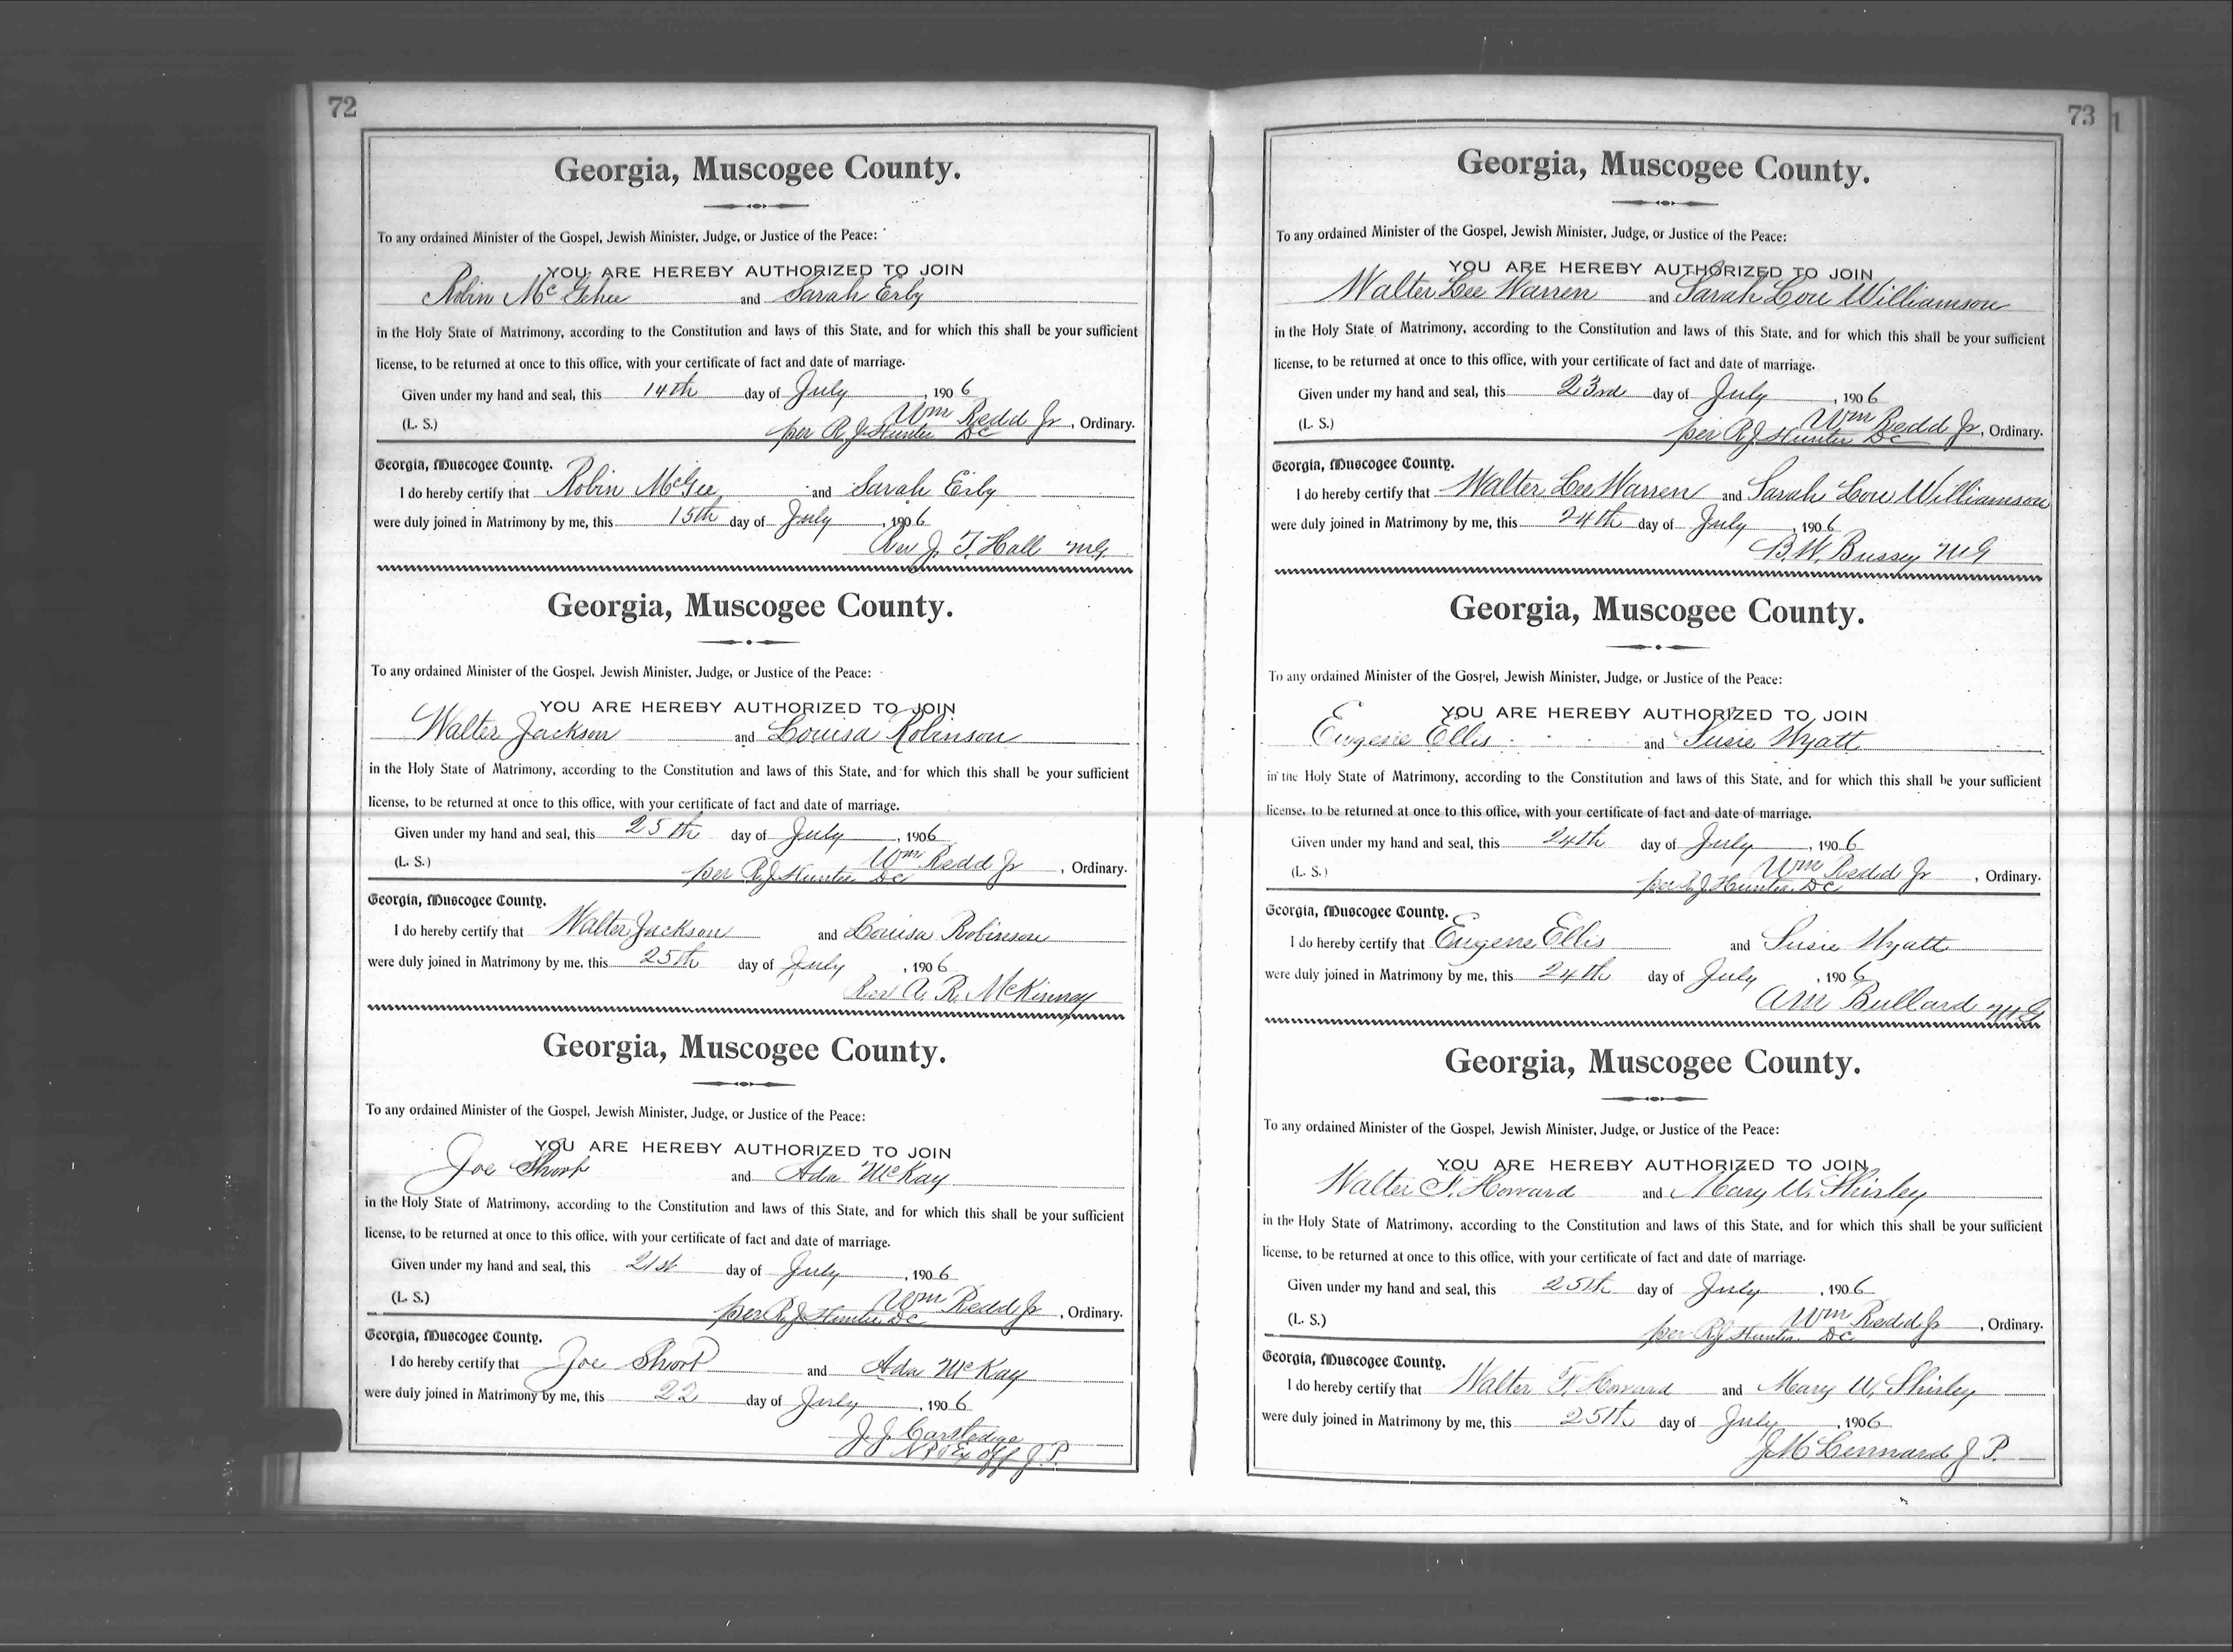 72
Georgia, Muscogee County.
To any ordained Minister of the Gospel, Jewish Minister, Judge, or Justice of the Peace:
YOU ARE HEREBY AUTHORIZED TO JOIN
Robin McGehee and Sarah Erby
in the Holy State of Matrimony, according to the Constitution and laws of this State, and for which this shall be your sufficient
license, to be returned at once to this office, with your certificate of fact and date of marriage.
Given under my hand and seal, this 14th day of July, 1906
(L. S.) Wm Redd Jr, Ordinary.
per R J Hunter DC
Georgia, Muscogee County.
I do hereby certify that Robin McGee and Sarah Erby
were duly joined in Matrimony by me, this 15th day of July, 1906
Rev J. T. Hall MG
Georgia, Muscogee County.
To any ordained Minister of the Gospel, Jewish Minister, Judge, or Justice of the Peace:
YOU ARE HEREBY AUTHORIZED TO JOIN
Walter Jackson and Louisa Robinson
in the Holy State of Matrimony, according to the Constitution and laws of this State, and for which this shall be your sufficient
license, to be returned at once to this office, with your certificate of fact and date of marriage.
Given under my hand and seal, this 25th day of July, 1906
(L. S.) Wm Redd Jr, Ordinary.
per R J Hunter DC
Georgia, Muscogee County.
I do hereby certify that Walter Jackson and Louisa Robinson
were duly joined in Matrimony by me, this 25th day of July, 1906
Rev A. R. McKinney
Georgia, Muscogee County.
To any ordained Minister of the Gospel, Jewish Minister, Judge, or Justice of the Peace:
YOU ARE HEREBY AUTHORIZED TO JOIN
Joe Short and Ada McKay
in the Holy State of Matrimony, according to the Constitution and laws of this State, and for which this shall be your sufficient
license, to be returned at once to this office, with your certificate of fact and date of marriage.
Given under my hand and seal, this 21st day of July, 1906
(L. S.) Wm Redd Jr, Ordinary.
per R J Hunter DC
Georgia, Muscogee County.
I do hereby certify that Joe Short and Ada McKay
were duly joined in Matrimony by me, this 22 day of July, 1906
J. J. Carstledge
N P & Ex Off J. P.
73
Georgia, Muscogee County.
To any ordained Minister of the Gospel, Jewish Minister, Judge, or Justice of the Peace:
YOU ARE HEREBY AUTHORIZED TO JOIN
Walter Lee Warren and Sarah Lou Williamson
in the Holy State of Matrimony, according to the Constitution and laws of this State, and for which this shall be your sufficient
license, to be returned at once to this office, with your certificate of fact and date of marriage.
Given under my hand and seal, this 23rd day of July, 1906
(L. S.) Wm Redd Jr, Ordinary.
per R J Hunter DC
Georgia, Muscogee County.
I do hereby certify that Walter Lee Warren and Sarah Lou Williamson
were duly joined in Matrimony by me, this 24th day of July, 1906
B. W. Bussey MG
Georgia, Muscogee County.
To any ordained Minister of the Gospel, Jewish Minister, Judge, or Justice of the Peace:
YOU ARE HEREBY AUTHORIZED TO JOIN
Eugene Ellis and Susie Wyatt
in the Holy State of Matrimony, according to the Constitution and laws of this State, and for which this shall be your sufficient
license, to be returned at once to this office, with your certificate of fact and date of marriage.
Given under my hand and seal, this 24th day of July, 1906
(L. S.) Wm Redd Jr, Ordinary.
per R J Hunter DC
Georgia, Muscogee County.
I do hereby certify that Eugene Ellis and Susie Wyatt
were duly joined in Matrimony by me, this 24th day of July, 1906
AM Bullard MG
Georgia, Muscogee County.
To any ordained Minister of the Gospel, Jewish Minister, Judge, or Justice of the Peace:
YOU ARE HEREBY AUTHORIZED TO JOIN
Walter F. Howard and Mary W. Shirley
in the Holy State of Matrimony, according to the Constitution and laws of this State, and for which this shall be your sufficient
license, to be returned at once to this office, with your certificate of fact and date of marriage.
Given under my hand and seal, this 25th day of July, 1906
(L. S.) Wm Redd Jr, Ordinary.
per R J Hunter DC
Georgia, Muscogee County.
I do hereby certify that Walter F. Howard and Mary W. Shirley
were duly joined in Matrimony by me, this 25th day of July, 1906
J M Lennard J. P.